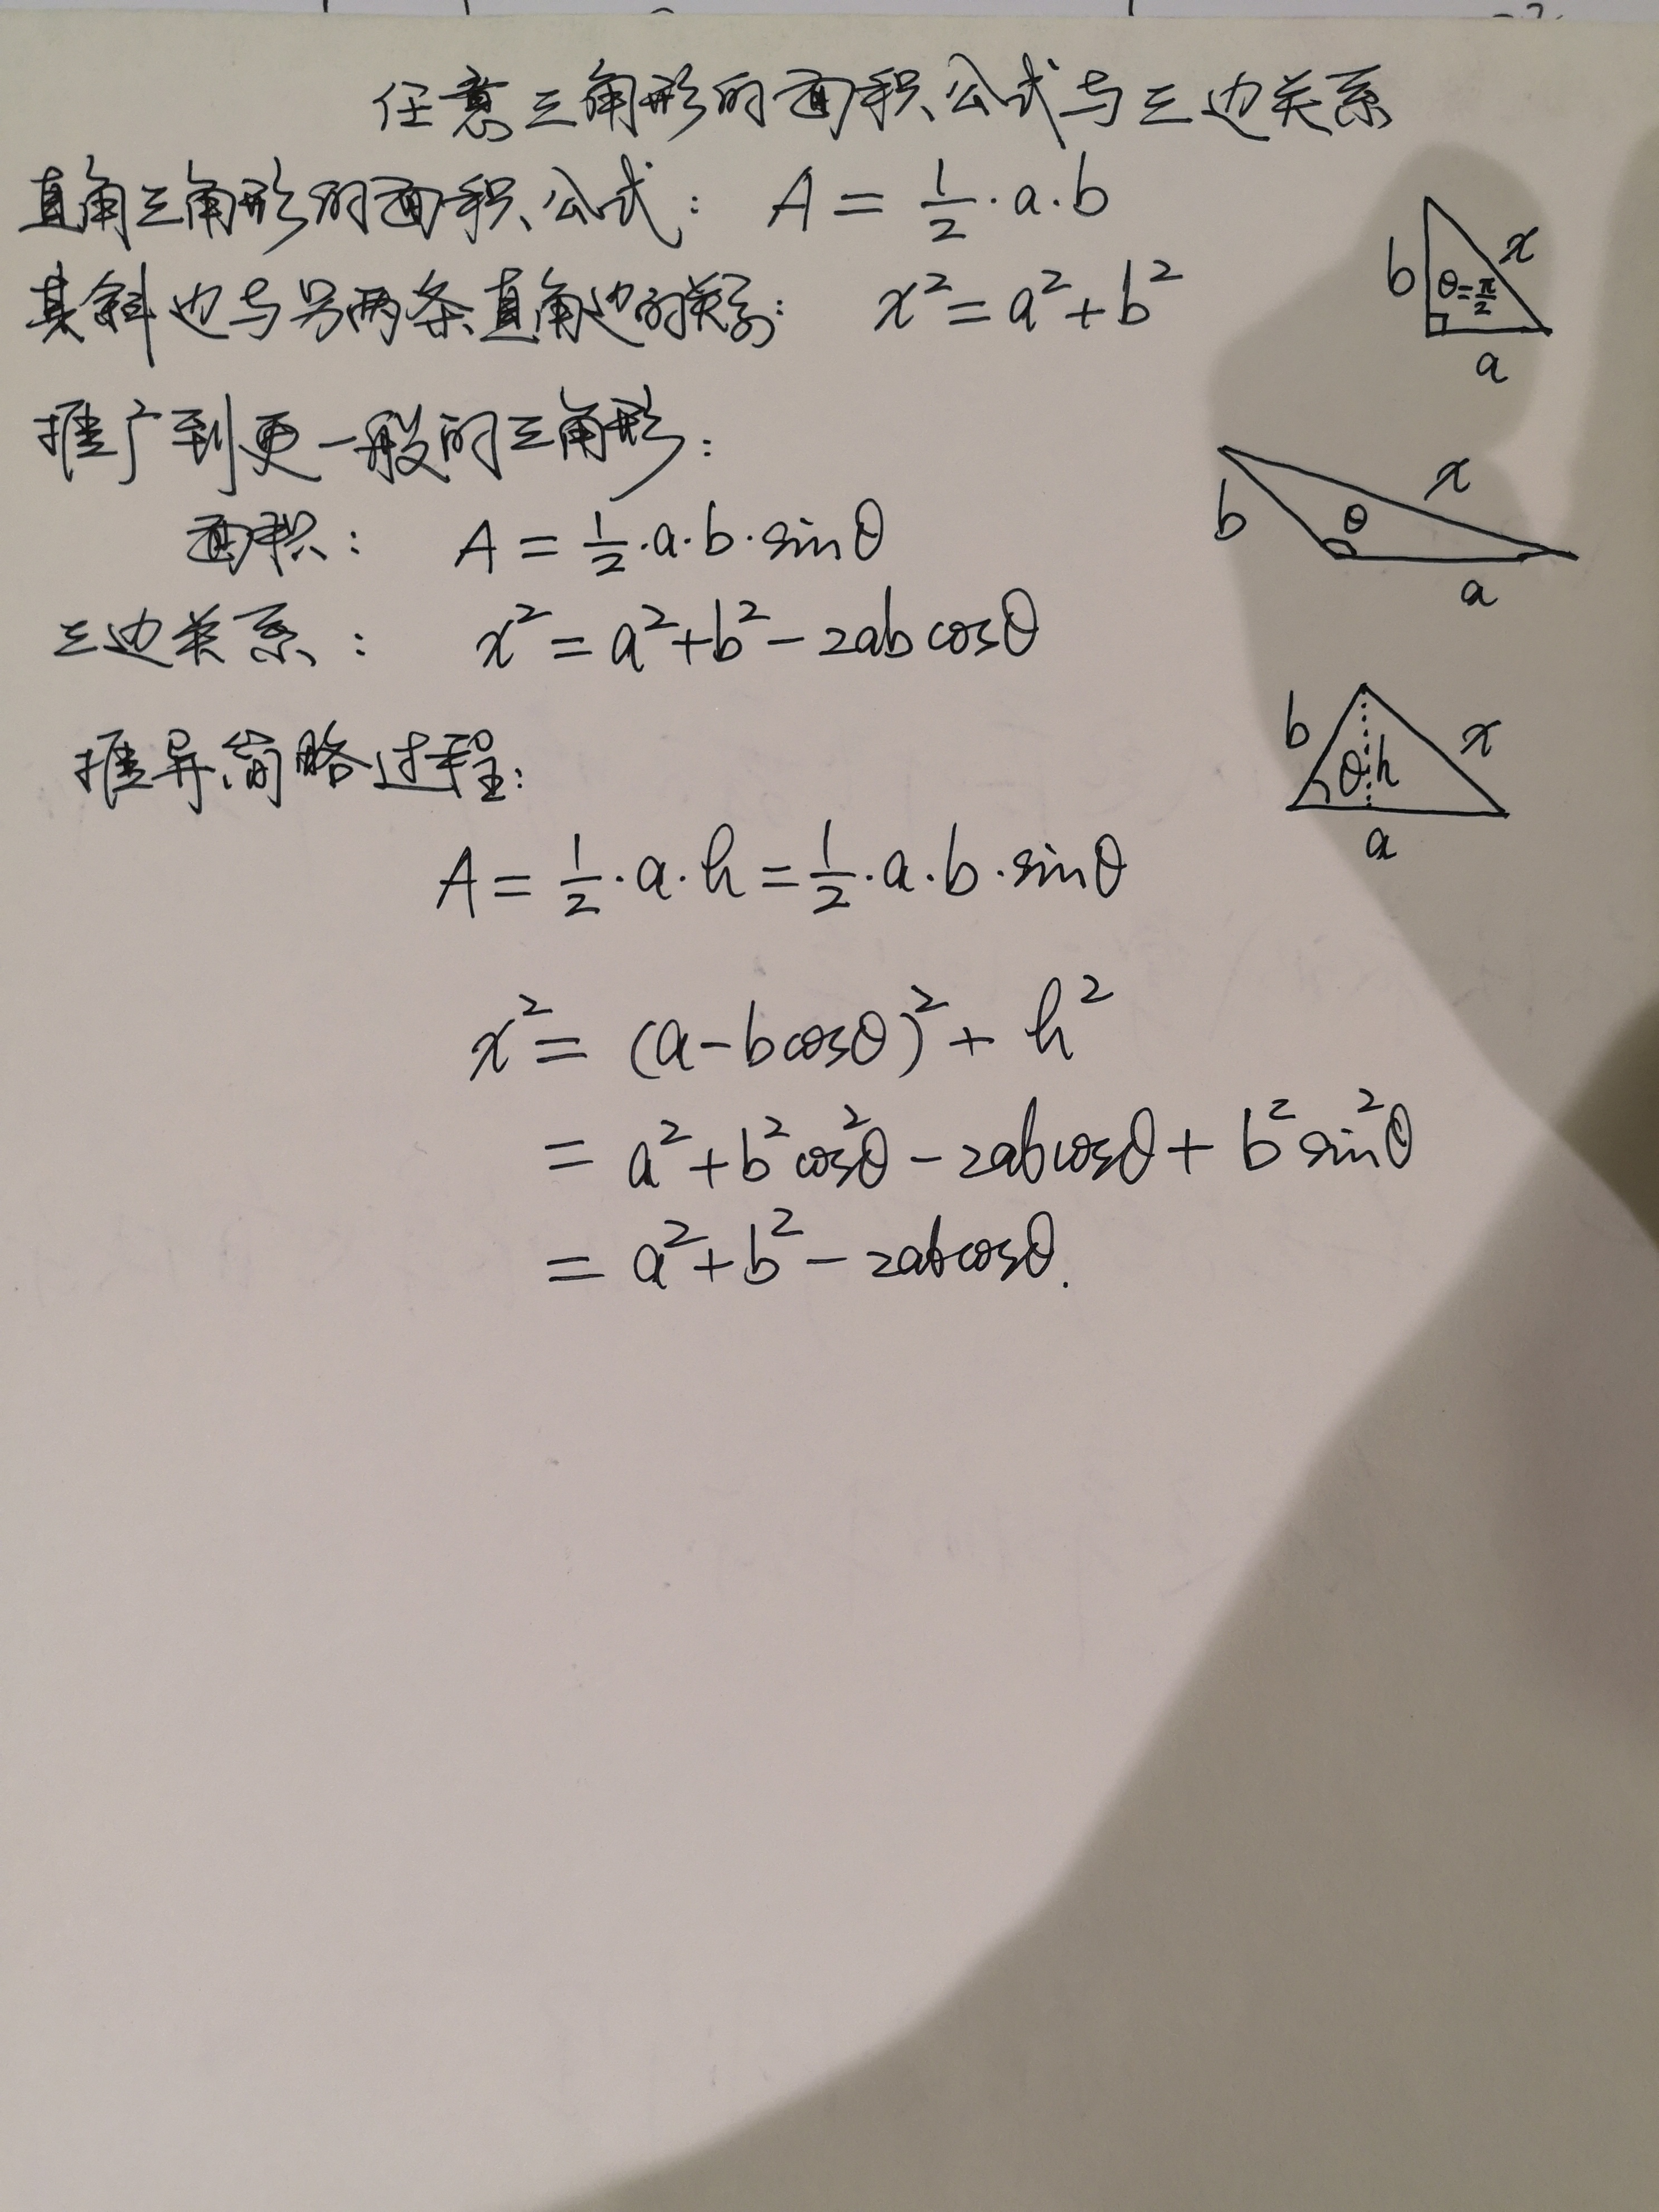 任意三角形的面积公式与三边关系
直角三角形的面积公式: A = 1/2 · a · b
其斜边与另两条直角边的关系: x² = a² + b²
b θ=π/2 x
a
推广到更一般的三角形:
面积: A = 1/2 · a · b · sinθ
三边关系: x² = a² + b² - 2ab cosθ
b θ x
a
推导简略过程:
b θ h x
a
A = 1/2 · a · h = 1/2 · a · b · sinθ
x² = (a - b cosθ)² + h²
= a² + b² cos²θ - 2ab cosθ + b² sin²θ
= a² + b² - 2ab cosθ.